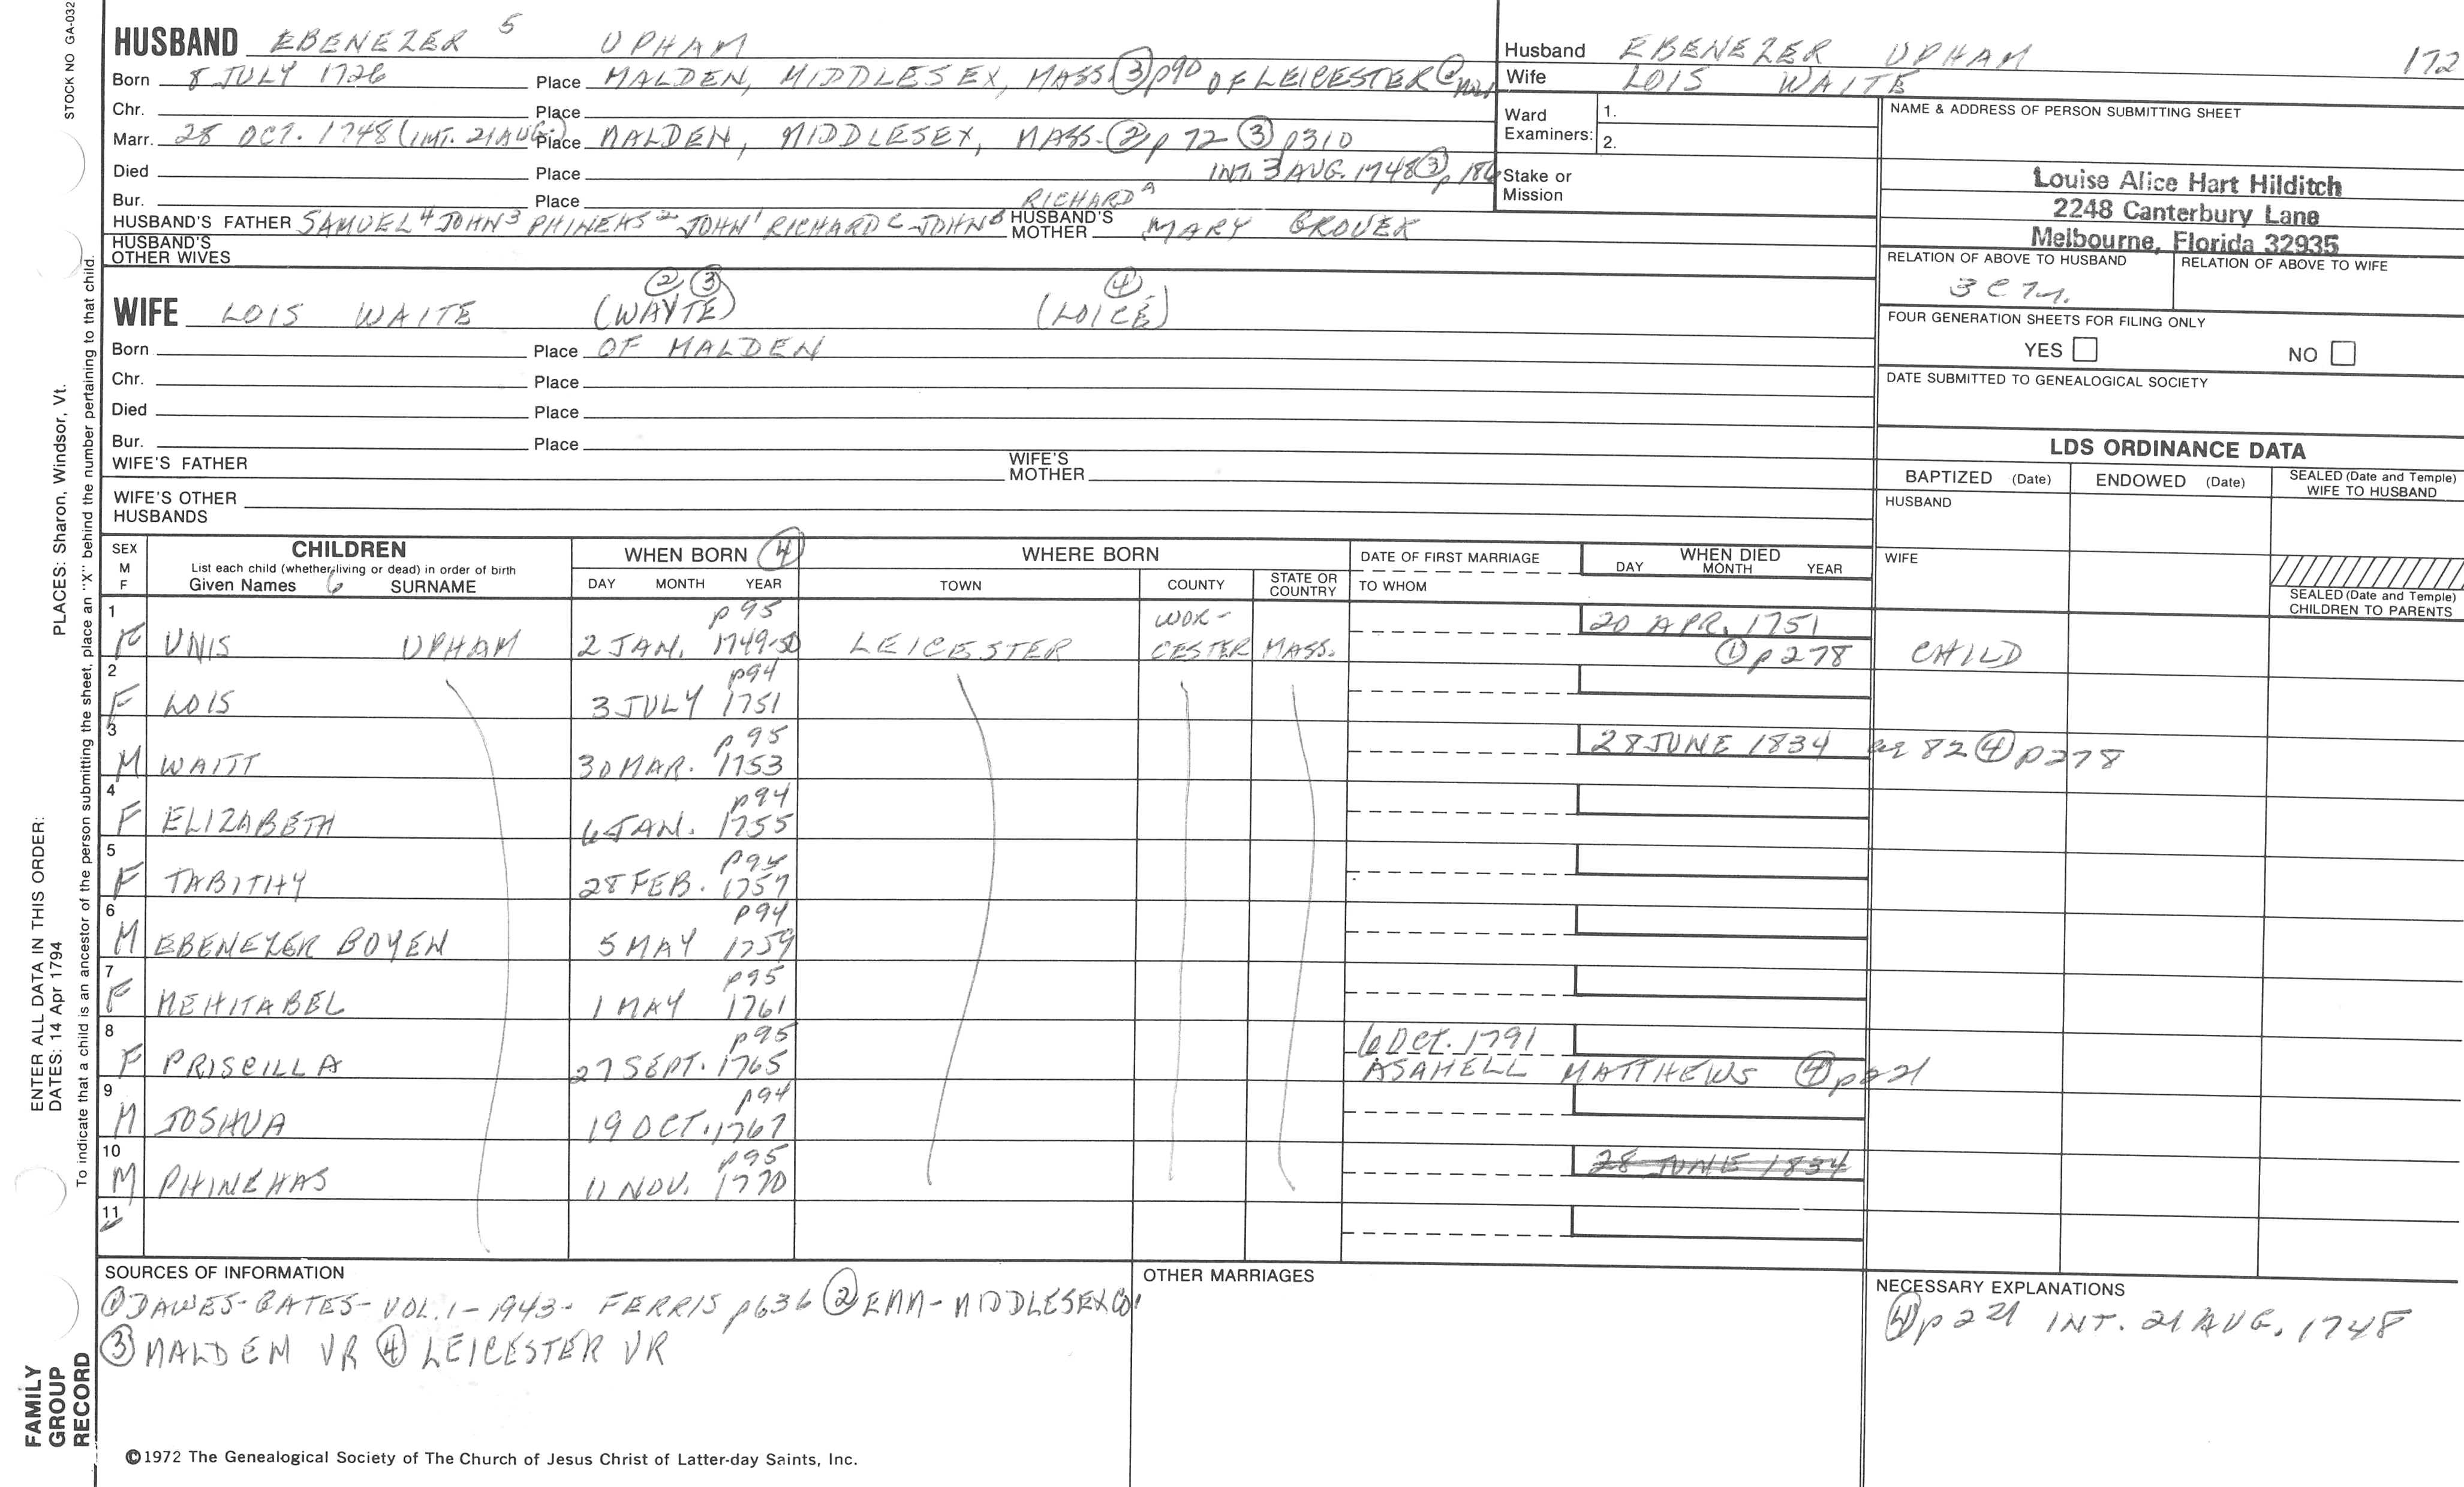 STOCK NO GA-032
HUSBAND EBENEZER 5 UPHAM
Born 8 JULY 1726 Place MALDEN, MIDDLESEX, MASS. ③ p90 OF LEICESTER
Chr. Place
Marr. 28 OCT. 1748 (INT. 21 AUG.) Place MALDEN, MIDDLESEX, MASS. ② p 72 ③ p310
Died Place INT. 3 AUG. 1748 ③ p 186
Bur. Place RICHARD A
HUSBAND'S FATHER SAMUEL 4 JOHN 3 PHINEHAS 2 JOHN 1 RICHARD C JOHN B HUSBAND'S MOTHER MARY GROVER
HUSBAND'S OTHER WIVES
② ③ ④
WIFE LOIS WAITE (WAYTE) (LOICE)
Born Place OF MALDEN
Chr. Place
Died Place
Bur. Place
WIFE'S FATHER WIFE'S MOTHER
WIFE'S OTHER HUSBANDS
Husband EBENEZER UPHAM 172
Wife LOIS WAITE
Ward Examiners: 1.
2.
Stake or Mission
NAME & ADDRESS OF PERSON SUBMITTING SHEET
Louise Alice Hart Hilditch
2248 Canterbury Lane
Melbourne, Florida 32935
RELATION OF ABOVE TO HUSBAND RELATION OF ABOVE TO WIFE
FOUR GENERATION SHEETS FOR FILING ONLY
YES NO
DATE SUBMITTED TO GENEALOGICAL SOCIETY
LDS ORDINANCE DATA
BAPTIZED (Date) ENDOWED (Date) SEALED (Date and Temple) WIFE TO HUSBAND
HUSBAND
WIFE
SEALED (Date and Temple) CHILDREN TO PARENTS
SEX M F
CHILDREN
List each child (whether living or dead) in order of birth
Given Names 6 SURNAME
WHEN BORN ④
DAY MONTH YEAR
WHERE BORN
TOWN COUNTY STATE OR COUNTRY
DATE OF FIRST MARRIAGE
TO WHOM
WHEN DIED
DAY MONTH YEAR
1 p95 WOR- 20 APR. 1751
F UNIS UPHAM 2 JAN. 1749-50 LEICESTER CESTER MASS. ① p278 CHILD
2 p94
F LOIS 3 JULY 1751
3 p95 28 JUNE 1834 ae 82 ④ p278
M WAITT 30 MAR. 1753
4 p94
F ELIZABETH 6 JAN. 1755
5 p94
F TABITHY 28 FEB. 1757
6 p94
M EBENEZER BOYEN 5 MAY 1759
7 p95
F MEHITABEL 1 MAY 1761
8 p95 6 OCT. 1791
F PRISCILLA 27 SEPT. 1765 ASAHELL MATTHEWS ④ p221
9 p94
M JOSHUA 19 OCT. 1767
10 p95 28 JUNE 1834
M PHINEHAS 11 NOV. 1770
11
SOURCES OF INFORMATION
① DAWES-GATES- VOL. 1- 1943- FERRIS p636 ② EMM- MIDDLESEX CO.
③ MALDEN VR ④ LEICESTER VR
OTHER MARRIAGES
NECESSARY EXPLANATIONS
④ p221 INT. 21 AUG. 1748
©1972 The Genealogical Society of The Church of Jesus Christ of Latter-day Saints, Inc.
FAMILY GROUP RECORD
ENTER ALL DATA IN THIS ORDER:
DATES: 14 Apr 1794
PLACES: Sharon, Windsor, Vt.
To indicate that a child is an ancestor of the person submitting the sheet, place an "X" behind the number pertaining to that child.